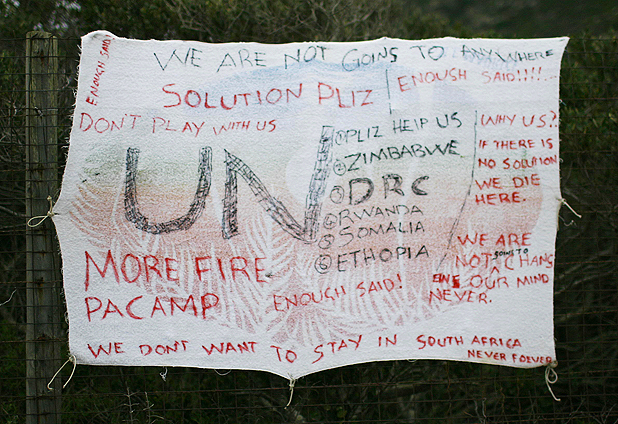 WE ARE NOT GOINS TO ANYWHERE
ENOUGH SAID
SOLUTION PLIZ
ENOUGH SAID!!!!...
DON'T PLAY WITH US
UN
PLIZ HEIP US
ZIMBABWE
DRC
RWANDA
SOMALIA
ETHOPIA
WHY US?
IF THERE IS
NO SOLUTION
WE DIE
HERE.
WE ARE
NOT GOINS TO CHANG
OUR MIND
NEVER.
MORE FIRE
PACAMP
ENOUGH SAID!
WE DONT WANT TO STAY IN SOUTH AFRICA
NEVER FOEVER